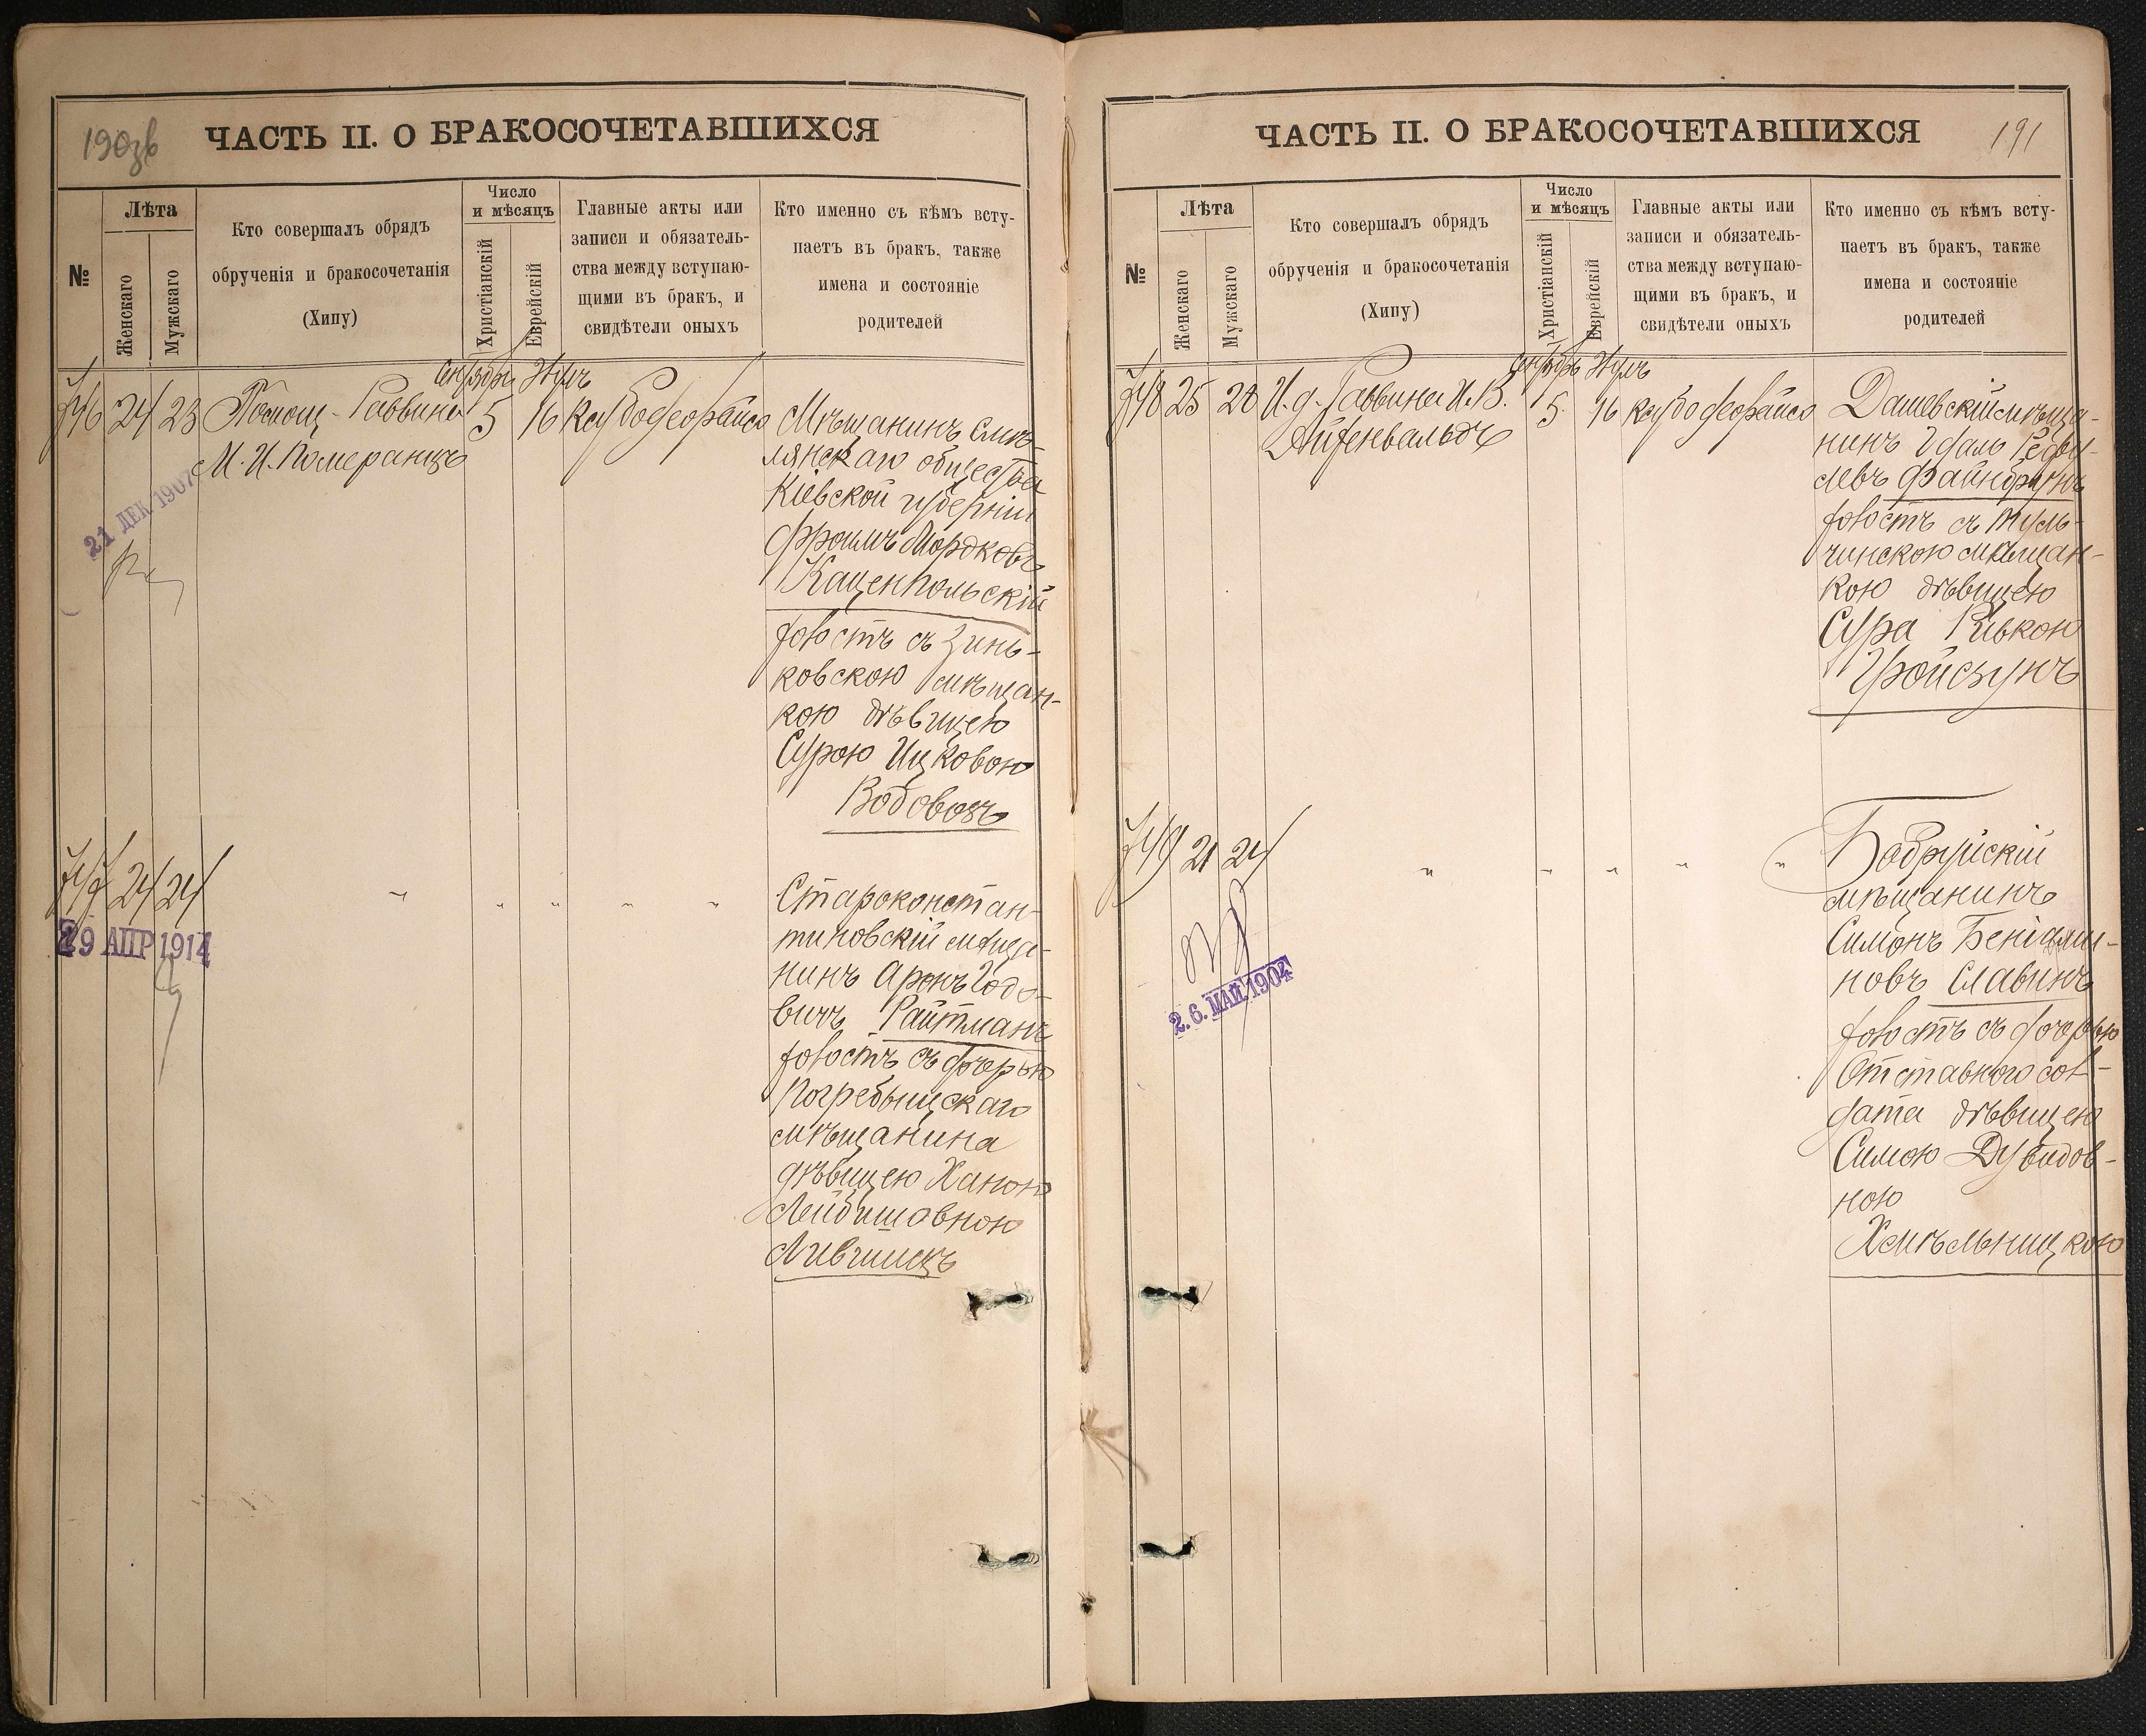 190зв
ЧАСТЬ II. О БРАКОСОЧЕТАВШИХСЯ
№
Лѣта
Женскаго
Мужскаго
Кто совершалъ обрядъ
обрученія и бракосочетанія
(Хипу)
Число
и мѣсяцъ
Христіанскій
Еврейскій
Главные акты или
записи и обязатель-
ства между вступаю-
щими въ бракъ, и
свидѣтели оныхъ
Кто именно съ кѣмъ всту-
паетъ въ бракъ, также
имена и состояніе
родителей
24 23 Помощ. Раввина
М. И. Померанцъ
5 16
Мѣщанинъ Смѣ-
лянскаго общества
Кіевской губерніи
Фроимъ Мордковъ
Каценпольскій
холостъ съ Зинь-
ковскою мѣщан-
кою дѣвицею
Сурою Ицковою
Водовозъ
21 ДЕК 1907
24 24 " " " " "
29 АПР 1914
Староконстан-
тиновскій мѣща-
нинъ Аронъ Іодо-
вичъ Райтманъ
холостъ съ дочерью
Погребыщскаго
мѣщанина
дѣвицею Ханою
Лейбишовною
Лившицъ
ЧАСТЬ II. О БРАКОСОЧЕТАВШИХСЯ
191
№
Лѣта
Женскаго
Мужскаго
Кто совершалъ обрядъ
обрученія и бракосочетанія
(Хипу)
Число
и мѣсяцъ
Христіанскій
Еврейскій
Главные акты или
записи и обязатель-
ства между вступаю-
щими въ бракъ, и
свидѣтели оныхъ
Кто именно съ кѣмъ всту-
паетъ въ бракъ, также
имена и состояніе
родителей
25 28 И. д. Раввина И. В.
5 16
Дашевскій мѣща-
нинъ
Файнбрунъ
холостъ съ Туль-
чинскою мѣщан-
кою дѣвицею
Сура Ривкою
Гройсзунъ
21 24 " " " " "
2.6. МАЙ 1904
Бобруйскій
мѣщанинъ
Симонъ Беніами-
новъ Славинъ
холостъ съ дочерью
Отставного сол-
дата дѣвицею
Симою Дувидов-
ною
Хмѣльницкою